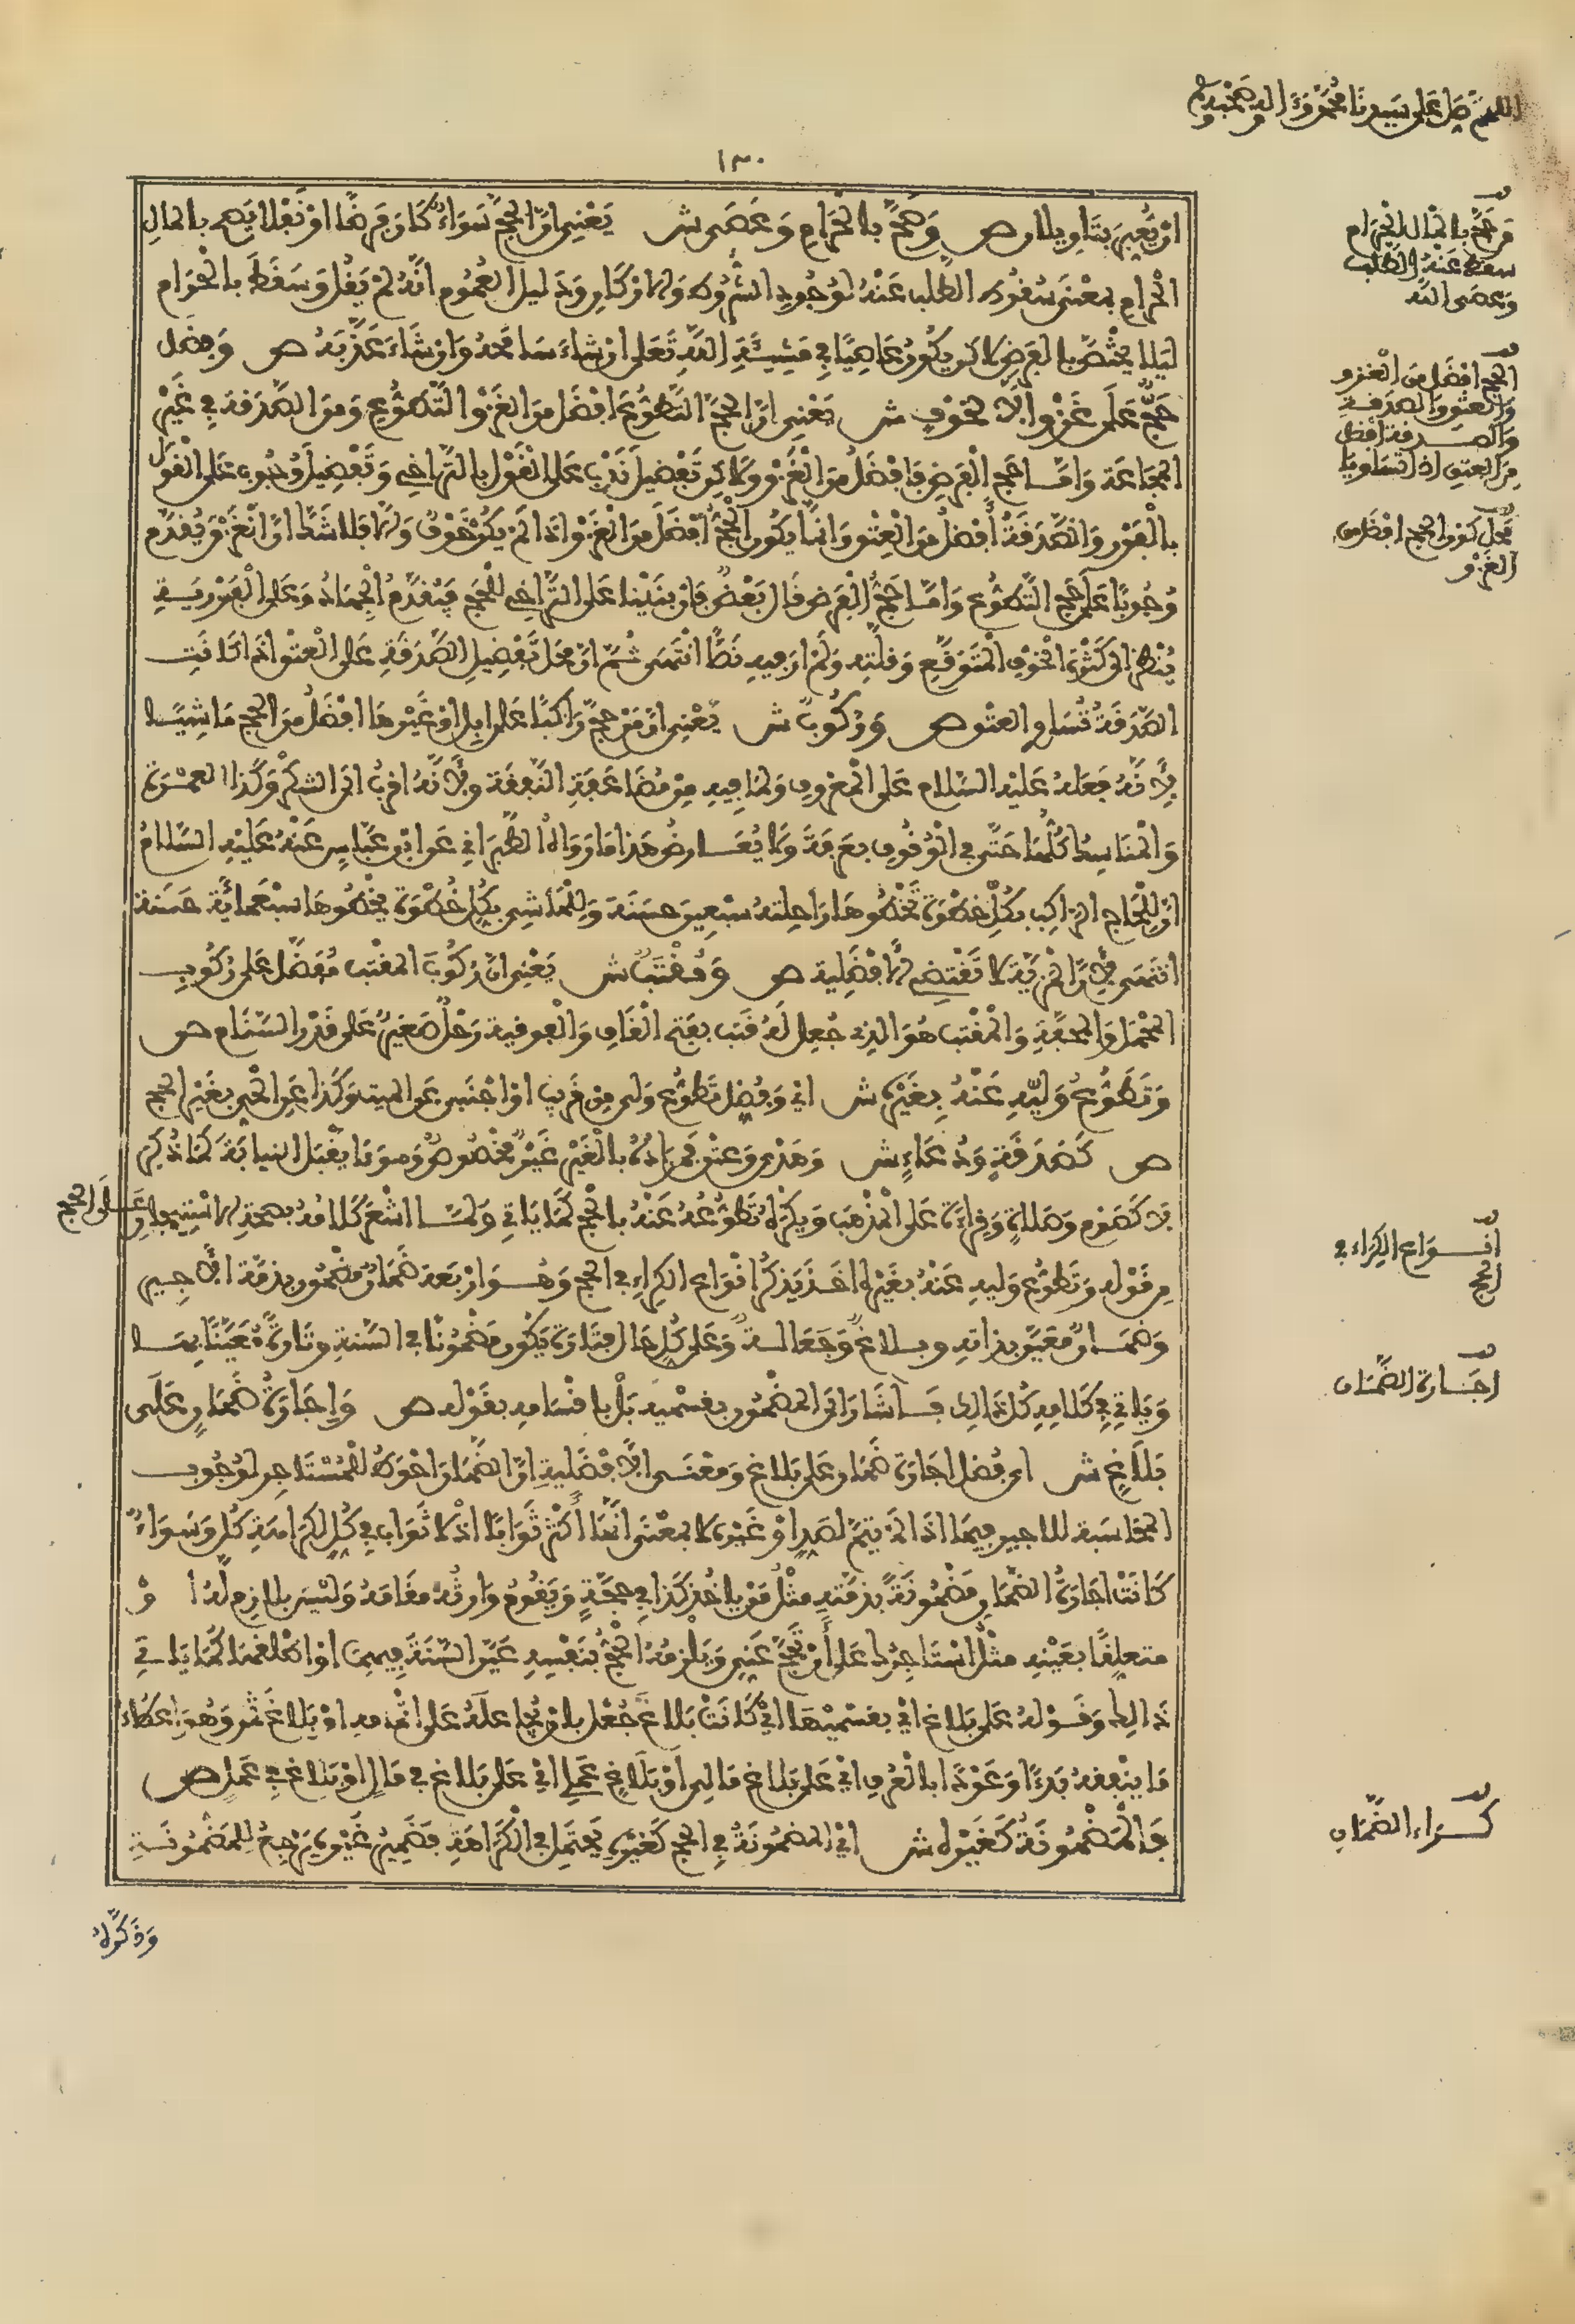 اللهم صل على سيدنا محمد وءاله وصحبه وسلم
١٣٠
او يعتبر بتاويلان ص وصح بالحرام وعصى ش يعنى ان الحج سواء كان فرضا او نفلا يصح بالمال
الحرام بمعنى سقوط الطلب عنه لوجود الشروط والاركان ودليل العموم انه لم يقل وسقط بالحرام
ليلا يختص بالفرض لاكن يكون عاصيا في مشيئة الله تعلى ان شاء سامحه وان شاء عذبه ص وفضل
حج على غزو الا لخوف ش يعنى ان الحج التطوع افضل من الغزو التطوع ومن الصدقة في غير
المجاعة واما حج الفرض فافضل من الغزو ولاكن تفضيل ندب على القول بالتراخي وتفضيل وجوب على القول
بالفور والصدقة افضل من العتق وانما يكون الحج افضل من الغزو اذا لم يكن خوف والا فلا شك ان الغزو يقدم
وجوبا على حج التطوع واما حج الفرض فقال بعض فان بنينا على التراخي للحج فيقدم الجهاد وعلى الفورية
ينظر الى كثرة الخوف المتوقع وقلته ولم ار فيه نصا انتهى ثم ان محل تفضيل الصدقة على العتق اذا كانت
الصدقة تساوي العتق ص وركوب ش يعنى ان من حج راكبا على ابل او غيرها افضل من الحج ماشيا
لانه فعله عليه السلام على المعروف ولما فيه من مضاعفة النفقة ولانه اقرب الى الشكر وكذا العمرة
والمناسك كلها حتى في الوقوف بعرفة ولا يعارض هذا ما رواه الطبراني عن ابن عباس عنه عليه السلام
ان للحاج الراكب بكل خطوة تخطوها راحلته سبعين حسنة وللماشي بكل خطوة يخطوها سبعمائة حسنة
انتهى لان المزية لا تقتضي الافضلية ص ومقتب ش يعنى ان ركوب المقتب مفضل على ركوب
المحمل والمحفة والمقتب هو الذي جعل له قتب بفتح القاف والفوقية رحل صغير على قدر السنام ص
وتطوع وليه عنه بغيره ش اي وفضل تطوع ولي من قريب او اجنبي عن الميت وكذا عن الحي بغير الحج
ص كصدقة ودعاء ش وهدي وعتق فمراده بالغير غير مخصوص وهو ما يقبل النيابة كما ذكر
لا كصوم وصلاة وقراءة على المذهب ويكره تطوعه عنه بالحج كما ياتي ولما اشعر كلامه بصحة الاستنابة
على الحج
من قوله وتطوع وليه عنه بغيره اخذ يذكر انواع الكراء في الحج وهو اربعة ضمان مضمون بذمة الاجير
وضمان معين بذاته وبلاغ وجعالة وعلى كل حال فتارة يكون مضمونا في السنة وتارة معينا بها
وياتي في كلامه كل ذالك فاشار الى المضمون بقسميه بل باقسامه بقوله ص واجارة ضمان على
بلاغ ش اي فضل اجارة ضمان على بلاغ ومعنى الافضلية ان الضمان احوط للمستاجر لوجوب
المحاسبة للاجير فيها اذا لم يتم لصد او غيره لا بمعنى انها اكثر ثوابا اذ لا ثواب في كل لكراهة كل وسواء
كانت اجارة الضمان مضمونة بذمته مثل من ياخذ كذا في حجة ويقوم وارثه مقامه وليس بلازم له او
متعلقا بعينه مثل استاجرك على ان تحج عني ويلزمه الحج بنفسه عين السنة فيهما او اطلقها كما ياتي
ذالك وقوله على بلاغ اي بقسميها اي كانت بلاغ جعل بان يجاعله على اتمامه او بلاغ ثمن وهو اعطاء
ما ينفقه بدءا وعودا بالعرف اي على بلاغ مالي او بلاغ عملي اي على بلاغ في مال او بلاغ في عمل ص
فالمضمونة كغيره ش اي المضمونة في الحج كغيره يحتمل في الكراهة فضمير غيره يرجع للمضمونة
وذكره
من حج بالمال الحرام
سقط عنه الطلب
وعصى الله
الحج افضل من الغزو
والعتق والصدقة
والصدقة افضل
من العتق اذا تساويا
محل كون الحج افضل من
الغزو
انواع الكراء في
الحج
اجارة الضمان
كراء الضمان